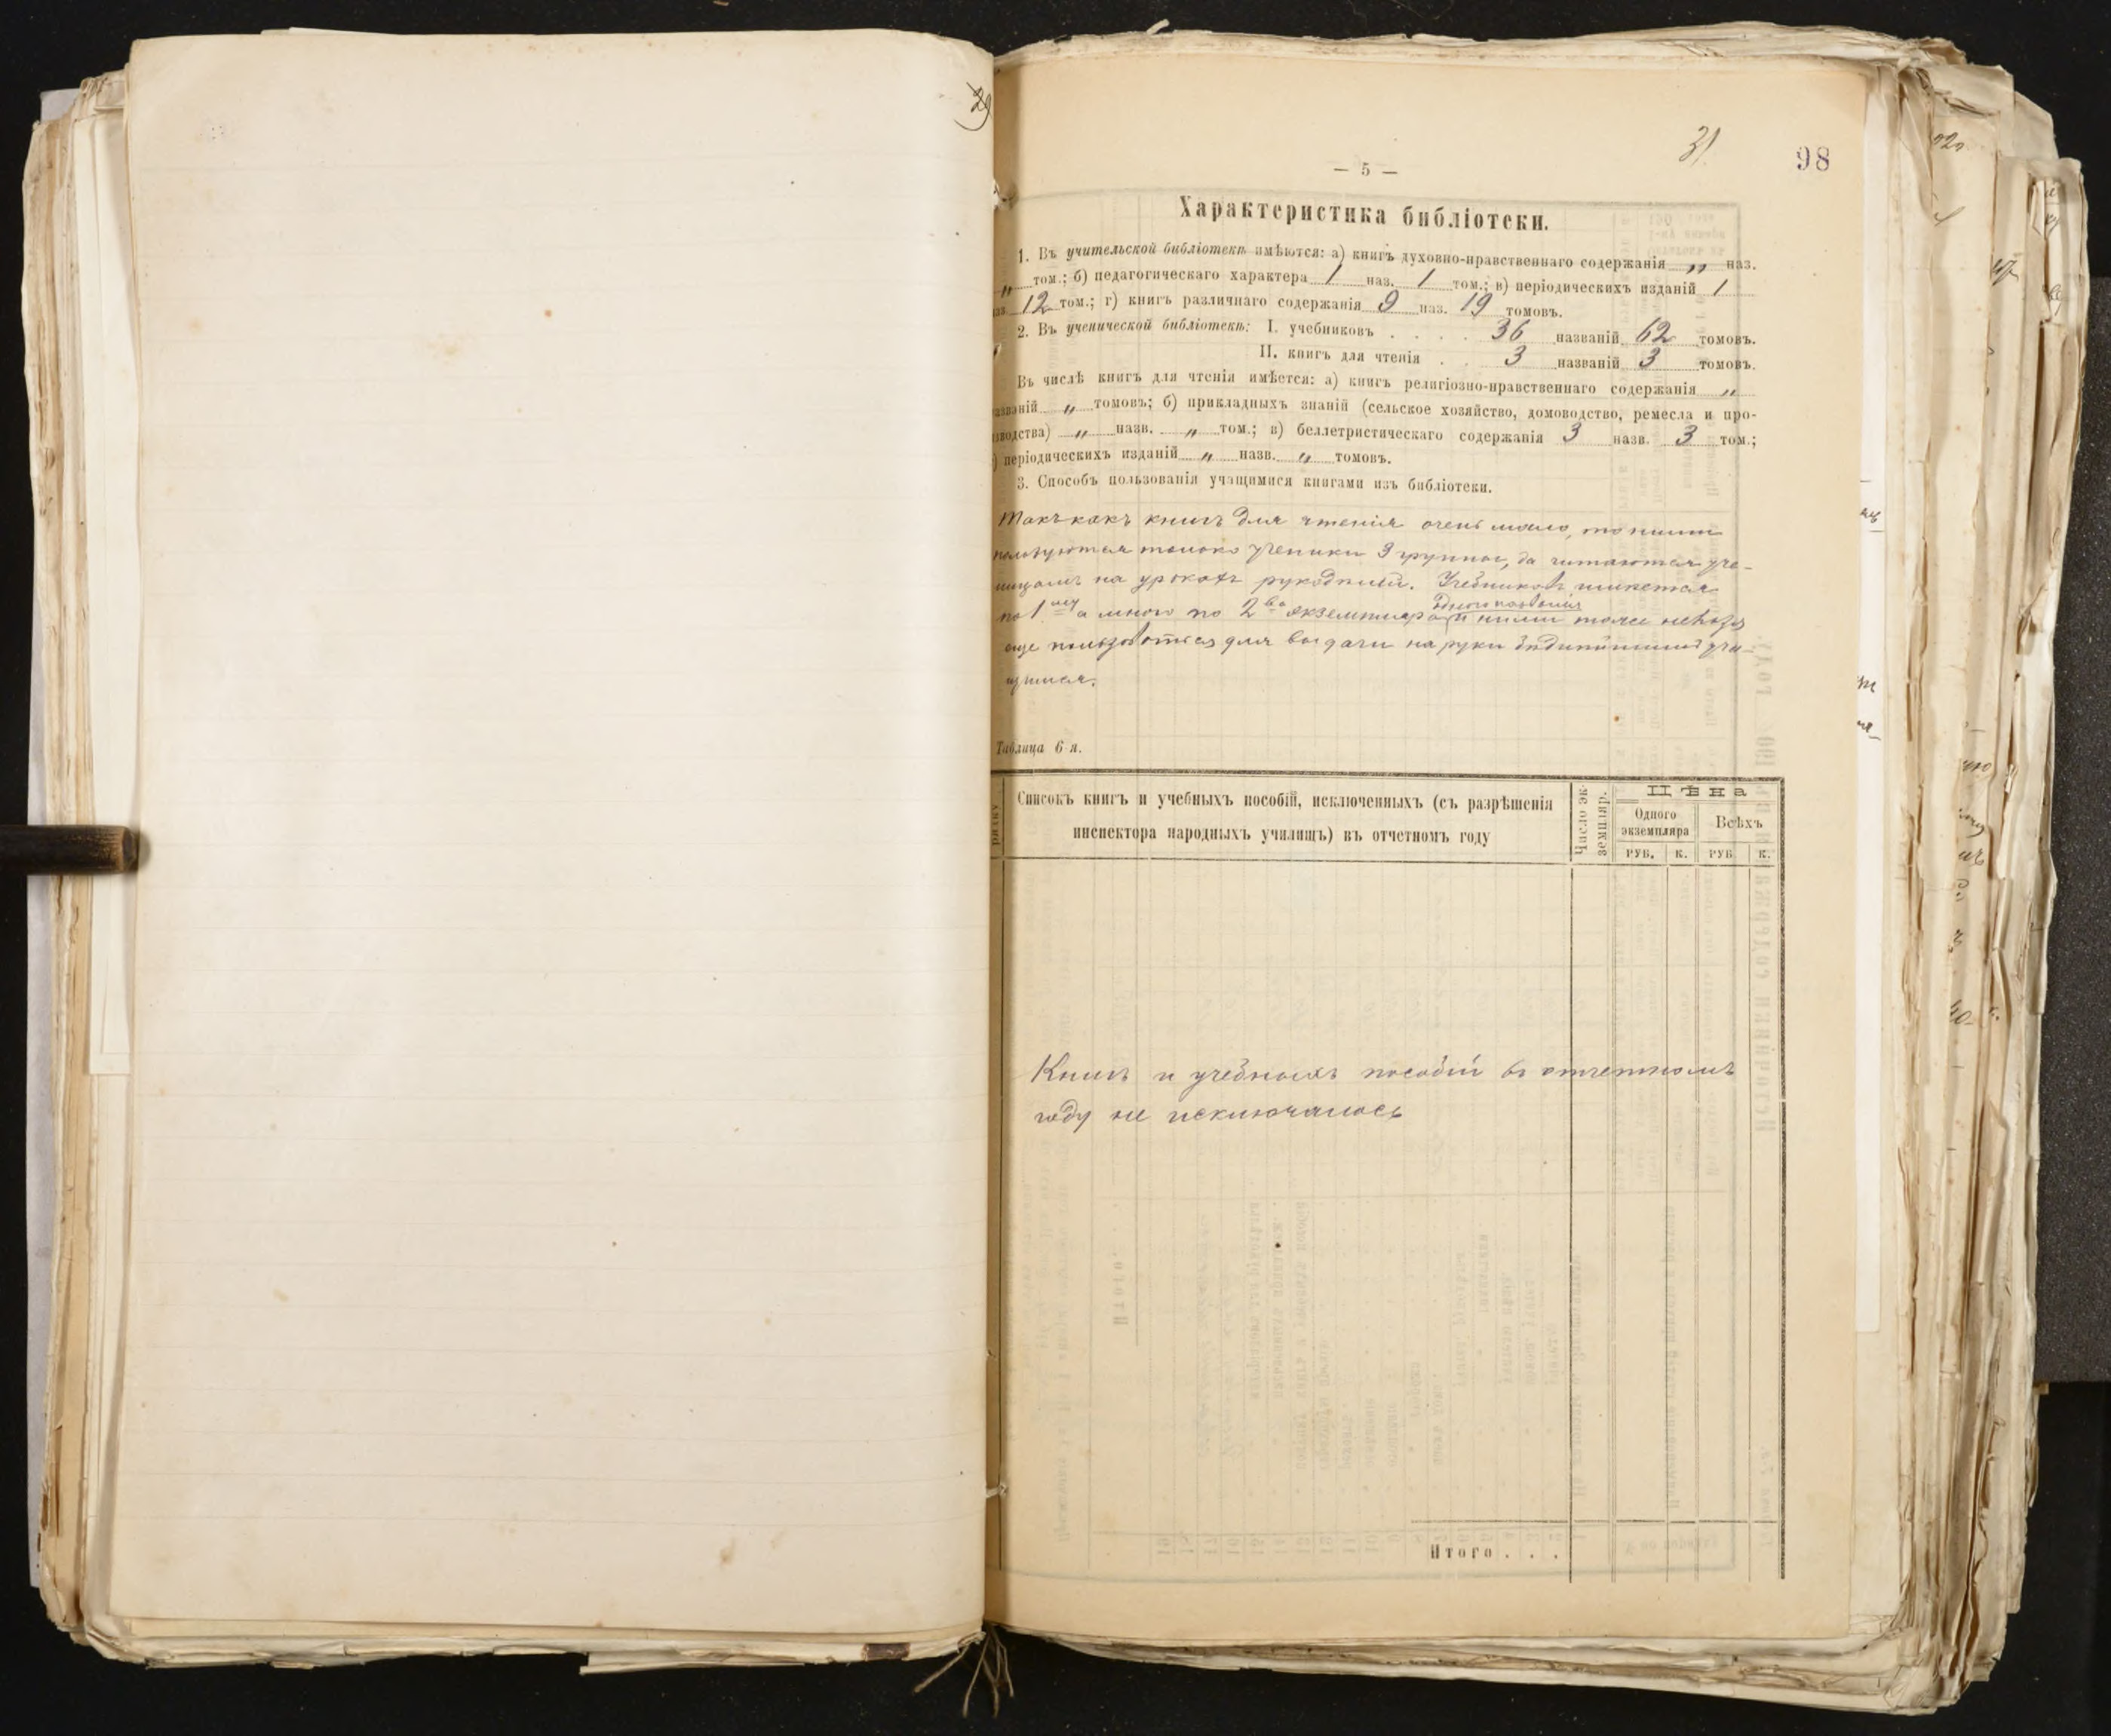 31
98
— 5 —
Характеристика библіотеки.
1. Въ учительской библіотекѣ имѣются: а) книгъ духовно-нравственнаго содержанія „ наз.
„ том.; б) педагогическаго характера 1 наз. 1 том.; в) періодическихъ изданій 1
наз. 12 том.; г) книгъ различнаго содержанія 9 наз. 19 томовъ.
2. Въ ученической библіотекѣ: I. учебниковъ . . . . 36 названій 62 томовъ.
II. книгъ для чтенія . . 3 названій 3 томовъ.
Въ числѣ книгъ для чтенія имѣется: а) книгъ религіозно-нравственнаго содержанія „
названій „ томовъ; б) прикладныхъ знаній (сельское хозяйство, домоводство, ремесла и про-
изводства) „ назв. „ том.; в) беллетристическаго содержанія 3 назв. 3 том.;
) періодическихъ изданій „ назв. „ томовъ.
3. Способъ пользованія учащимися книгами изъ библіотеки.
Такъ какъ книгъ для чтенія очень мало, то ними
пользуются только ученики 3 группы, да читаются уче-
ницамъ на урокахъ рукодѣлій. Учебниковъ имѣется
одного названія
по 1му а много по 2ва экземпляра и ними тоже нельзя
еще пользоваться для выдачи на руки бѣднѣйшимъ уча-
щимся.
Таблица 6-я.
Списокъ книгъ и учебныхъ пособій, исключенныхъ (съ разрѣшенія
инспектора народныхъ училищъ) въ отчетномъ году
Число эк-
земпляр.
Цѣна
Одного
экземпляра
Всѣхъ
РУБ. К. РУБ. К.
Книгъ и учебныхъ пособій въ отчетномъ
году не исключалось
Итого . . .